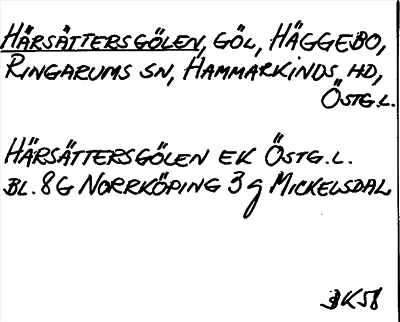 HÄRSÄTTERSGÖLEN, GÖL, HÄGGEBO,
RINGARUMS SN, HAMMARKINDS HD,
ÖSTG.L.
HÄRSÄTTERSGÖLEN EK ÖSTG.L.
BL. 8G NORRKÖPING 3g MICKELSDAL